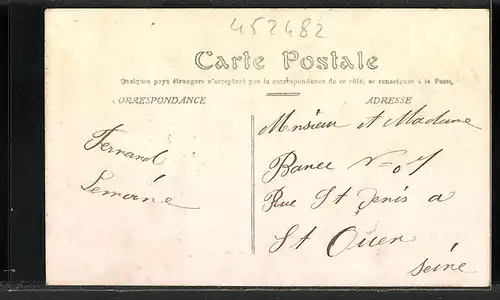 452482
Carte Postale
Quelques pays étrangers n'acceptent pas la correspondance de ce côté, se renseigner à la Poste
CORRESPONDANCE
ADRESSE
Monsieur et Madame
Fernand
Lemoine
Rue St Denis a
St Ouen
Seine